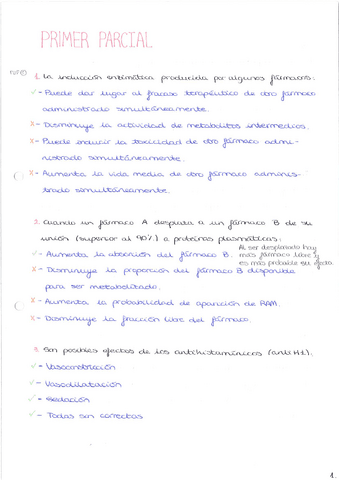 PRIMER PARCIAL
1. La inducción enzimática producida por algunos fármacos:
✓ - Puede dar lugar al fracaso terapéutico de otro fármaco
administrado simultáneamente.
X - Disminuye la actividad de metabolitos intermedios.
X - Puede inducir la toxicidad de otro fármaco admi-
nistrado simultáneamente.
X - Aumenta la vida media de otro fármaco adminis-
trado simultáneamente.
2. Cuando un fármaco A desplaza a un fármaco B de su
unión (superior al 90%) a proteínas plasmáticas:
✓ - Aumenta la absorción del fármaco B.
Al ser desplazado hay
más fármaco libre y
es más probable su efecto.
X - Disminuye la proporción del fármaco B disponible
para ser metabolizado.
X - Aumenta la probabilidad de aparición de RAM.
X - Disminuye la fracción libre del fármaco.
3. Son posibles efectos de los antihistamínicos (anti H1):
✓ - Vasoconstricción
✓ - Vasodilatación
✓ - Sedación
✓ - Todas son correctas
1.